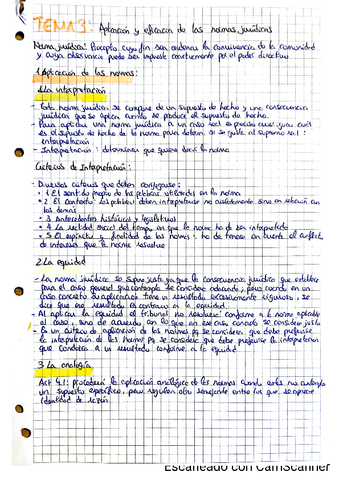 TEMA 3: Aplicación y eficacia de las normas jurídicas
Norma jurídica: Precepto cuyo fin sea ordenar la convivencia de la comunidad
y cuya observancia puede ser impuesta coactivamente por el poder directivo
1. Aplicación de las normas:
1. La interpretación
- Toda norma jurídica se compone de un supuesto de hecho y una consecuencia
jurídica que se aplica cuando se produce el supuesto de hecho.
- Para aplicar una norma jurídica a un caso real es preciso cuál
es el supuesto de hecho de la norma para determ. si se ajusta al supuesto real:
interpretación
- Interpretación: determinar que quiere decir la norma
Criterios de Interpretación:
- Diversos criterios que deben conjugarse:
· 1 El sentido propio de las palabras utilizadas en la norma
· 2 El contexto: las palabras deben interpretarse no aisladamente sino en relación con
las demás
· 3 Antecedentes históricos y legislativos
· 4 La realidad social del tiempo en que la norma ha de ser interpretada
· 5 El espíritu y finalidad de las normas: ha de tenerse en cuenta el conflicto
de intereses que la norma resuelve
2 La equidad
- La norma jurídica se supone justa, ya que la consecuencia jurídica que establece
para el caso general que contempla se considera adecuada; pero cuando en un
caso concreto su aplicación tiene un resultado excesivamente riguroso, se
dice que ese resultado es contrario a la equidad.
- Al aplicar la equidad el tribunal no resuelve conforme a la norma aplicable
al caso, sino de acuerdo con lo que en ese caso concreto se considera justo
- Es un criterio de aplicación de las normas pq se considera que debe preferirse
la interpretación de las normas pq se considera que debe preferirse la interpretación
que conduzca a un resultado conforme a la equidad.
3 La analogía
Art 4.1: procederá la aplicación analógica de las normas cuando estas no contemplen
un supuesto específico, pero regulen otro semejante entre los que se aprecie
identidad de razón.
Escaneado con CamScanner